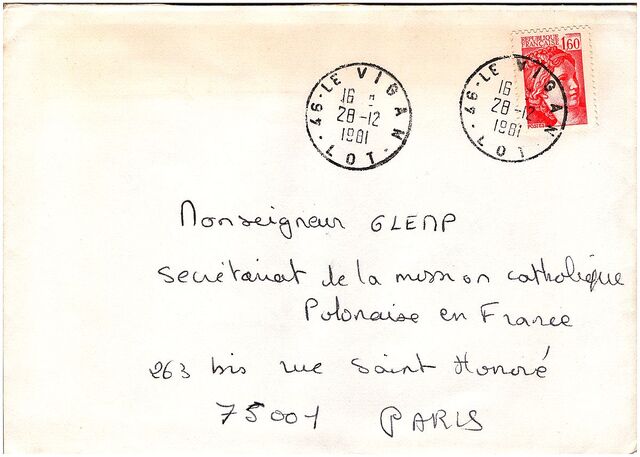 REPUBLIQUE FRANCAISE 1,60
POSTES
46 - LE VIGAN - LOT
16 H
28-12
1981
46 - LE VIGAN - LOT
16
28-12
1981
Monseigneur GLEMP
Secrétariat de la mission catholique
Polonaise en France
263 bis rue Saint Honoré
75001 PARIS